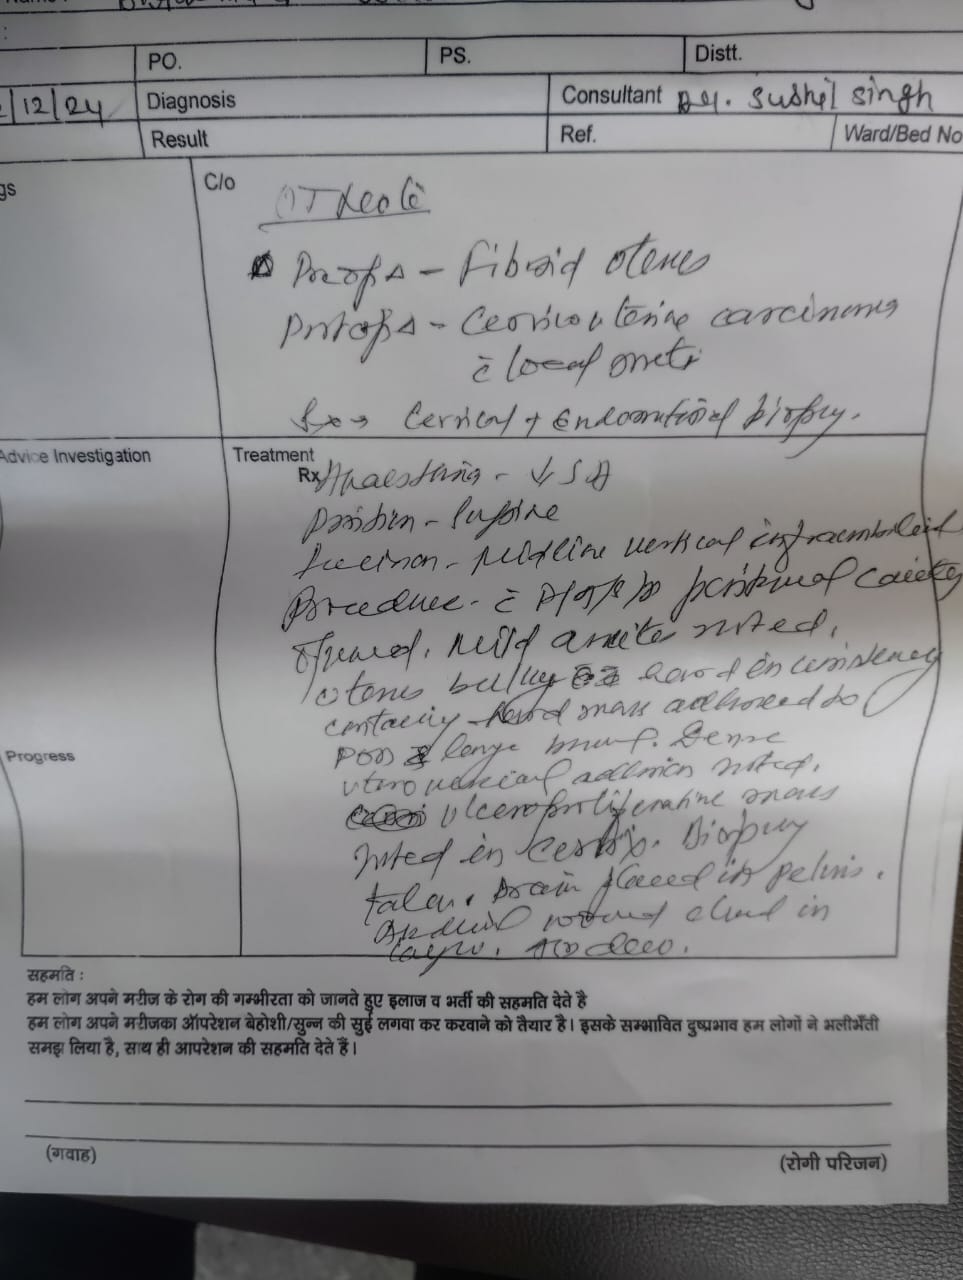 PO. PS. Distt.
/12/24 Diagnosis Consultant Dr. Sushil Singh
Result Ref. Ward/Bed No
gs C/o
OT Note
Preop Δ - Fibroid uterus
Postop Δ - Cervico uterine carcinoma
c̄ local
Cervical + Endometrial biopsy.
Advice Investigation Treatment
Rx Anaesthesia - ↓ SA
Position - Supine
Incision - Midline vertical infraumbilical
Procedure - c̄ peritoneal cavity
opened. Mild noted.
Uterus bulky hard in consistency
hard mass adhered to
POD & large bowel. Dense
Progress
uterovesical adhesion noted.
ulceroproliferative mass
noted in cervix. Biopsy
taken. Drain placed in pelvis.
wound closed in
layer.
सहमति :
हम लोग अपने मरीज के रोग की गम्भीरता को जानते हुए इलाज व भर्ती की सहमति देते है
हम लोग अपने मरीजका ऑपरेशन बेहोशी/सुन्न की सुई लगवा कर करवाने को तैयार है। इसके सम्भावित दुष्प्रभाव हम लोगों ने भलीभाँती
समझ लिया है, साथ ही आपरेशन की सहमति देते हैं।
(गवाह) (रोगी परिजन)